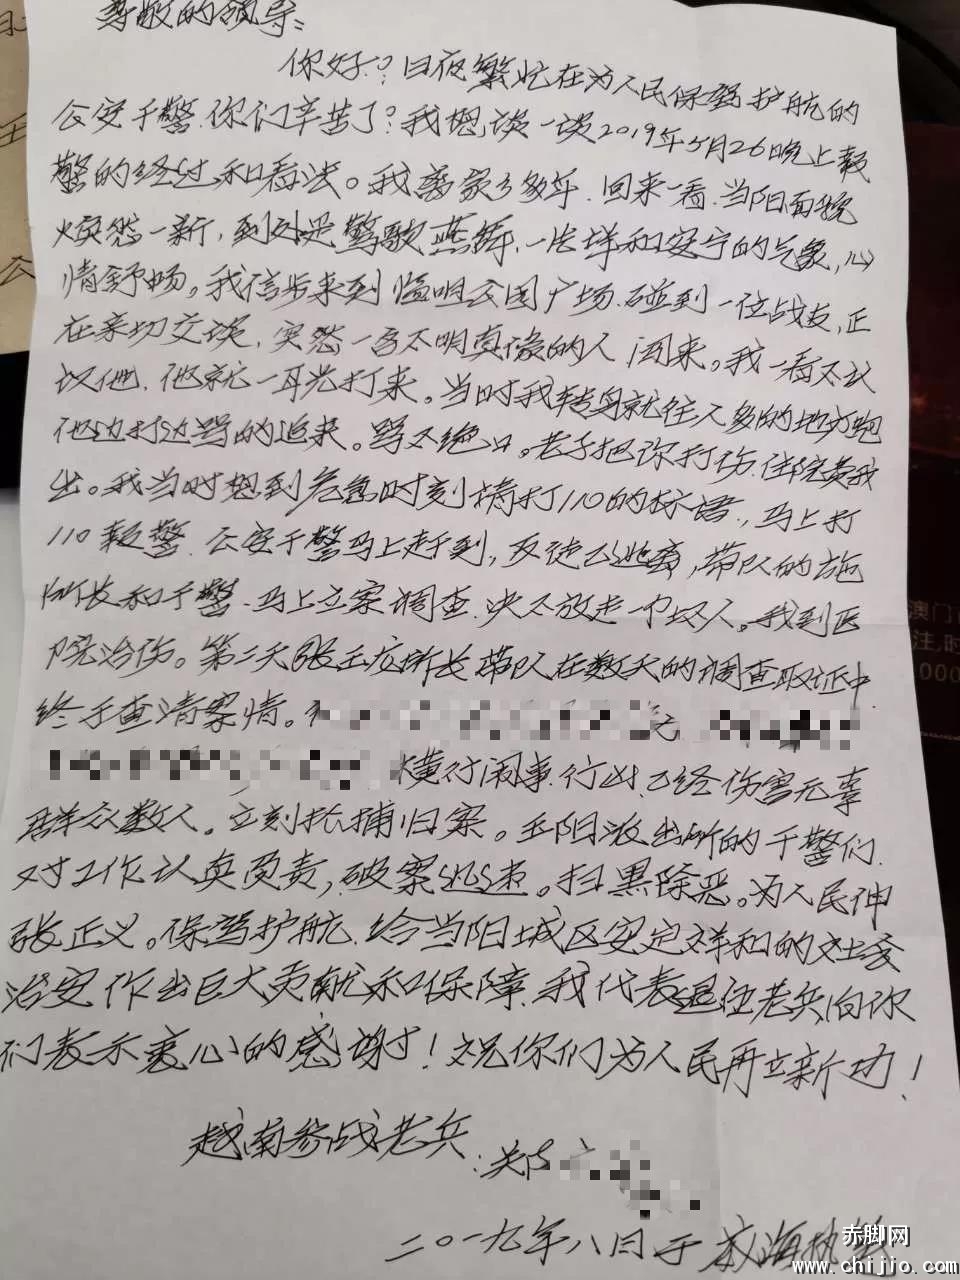 尊敬的领导:
你好?日夜繁忙在为人民保驾护航的
公安干警.你们辛苦了?我想谈一谈2019年5月26晚上报
警的经过和看法。我离家多年.回来一看.当阳面貌
焕然一新,到处是莺歌燕舞,一片祥和安宁的气象,心
情舒畅。我信步来到临沮公园广场.碰到一位战友,正
在亲切交谈,突然一名不明真像的人闯来。我一看不认
识他.他就一耳光打来。当时我转身就往人多的地方跑
他边打边骂的追来。骂不绝口。老子把你打伤.住院费我
出。我当时想到危急时刻请打110的标语.,马上打
110报警.公安干警马上赶到,歹徒已逃离,带队的施
所长和干警.马上立案调查.决不放走一个坏人。我到医
院治伤。第二天张玉 所长带队在数天的调查取证中
终于查清案情。
横行闹事.行凶.已经伤害无辜
群众数人。立刻抓捕归案。玉阳派出所的干警们.
对工作认真负责,破案迅速。扫黑除恶。为人民伸
张正义。保驾护航.给当阳城区安定祥和的社会
治安作出巨大贡献和保障.我代表退伍老兵向你
们表示衷心的感谢!祝你们为人民再立新功!
越南参战老兵:郑
二〇一九年八日于
澳门
注,时
000
赤脚网
www.chijio.com